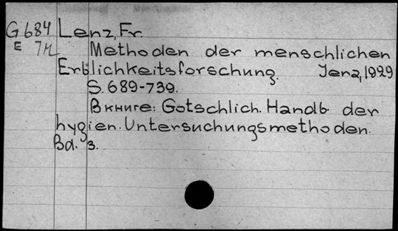 G684 Lenz, Fr.
E 7м Methoden der menschlichen
Erblichkeitsforschung. Jena, 1929
S. 689-739.
В книге: Gotschlich. Handb. der
hygien. Untersuchungsmethoden.
Bd. 3.